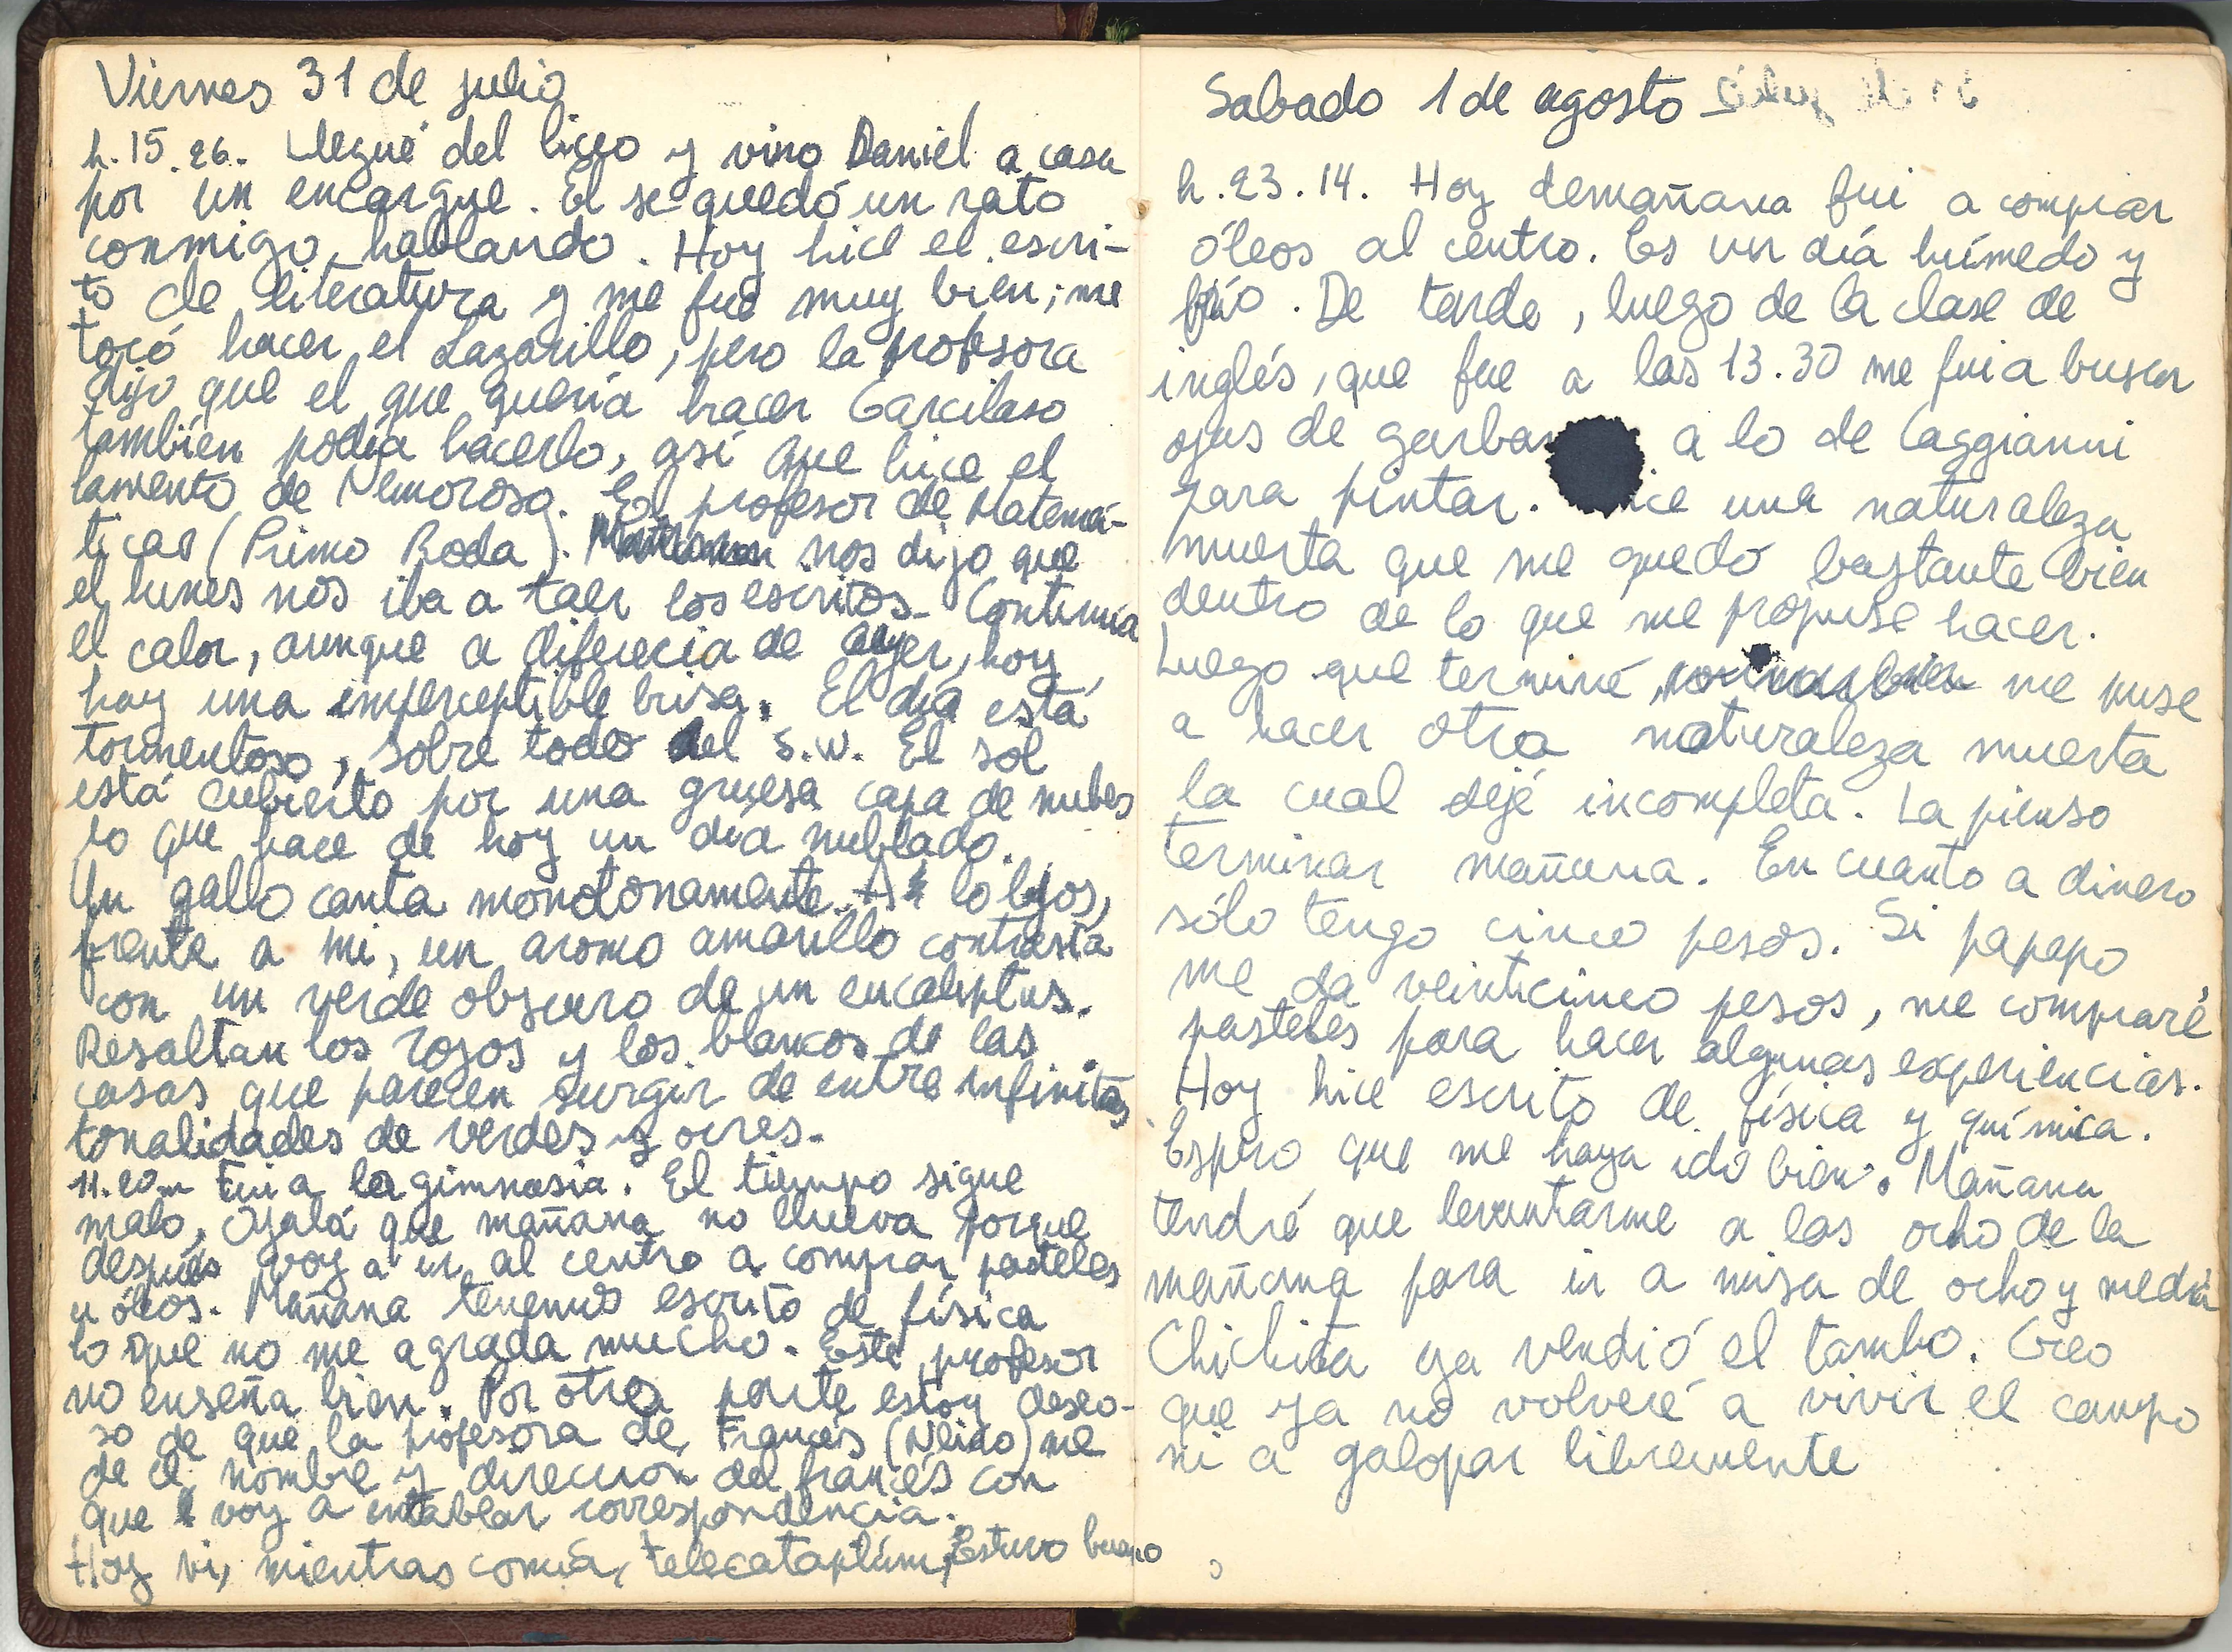 Viernes 31 de julio
h. 15.26. Llegué del liceo y vino Daniel a casa
por un encargue. El se quedó un rato
conmigo, hablando. Hoy hice el escri-
to de literatura y me fue muy bien; me
tocó hacer el Lazarillo, pero la profesora
dijo que el que quería hacer Garcilaso
también podía hacerlo, así que hice el
lamento de Nemoroso. El profesor de Matemá-
ticas (Primo Roda). nos dijo que
el lunes nos iba a taer los escritos. Continúa
el calor, aunque a diferecia de ayer, hoy
hay una imperceptible brisa. El día está
tormentoso, sobre todo del S.W. El sol
está cubierto por una gruesa capa de nubes
lo que hace de hoy un día nublado.
Un gallo canta monotonamente. A lo lejos,
frente a mi, un aromo amarillo contrasta
con un verde obscuro de un eucaliptus.
Resaltan los rojos y los blancos de las
casas que parecen surgir de entre infinitas
tonalidades de verdes y ocres.
11.20 Fui a la gimnasia. El tiempo sigue
malo, Ojalá que mañana no llueva porque
después voy a ir al centro a comprar pasteles
u óleos. Mañana tenemos escrito de física
lo que no me agrada mucho. Este profesor
no enseña bien. Por otra parte estoy deseo-
so de que la profesora de Francés (Neiro) me
de el nombre y dirección del francés con
que voy a entablar correspondencia.
Hoy vi, mientras comía, Telecataplúm, Estuvo bueno
Sabado 1 de agosto
h. 23.14. Hoy demañana fui a comprar
óleos al centro. Es un día húmedo y
frío. De tarde, luego de la clase de
inglés, que fue a las 13.30 me fui a buscar
ojas de garban a lo de Caggianni
para pintar. ice una naturaleza
muerta que me quedó bastante bien
dentro de lo que me propuse hacer.
Luego que terminé, me puse
a hacer otra naturaleza muerta
la cual dejé incompleta. La pienso
terminar mañana. En cuanto a dinero
sólo tengo cinco pesos. Si papapo
me da veinticinco pesos, me compraré
pasteles para hacer algunas experiencias.
Hoy hice escrito de física y química.
Espero que me haya ido bien. Mañana
tendré que levantarme a las ocho de la
mañana para ir a misa de ocho y media
Chichita ya vendió el tambo. Creo
que ya no volveré a vivir el campo
ni a galopar libremente